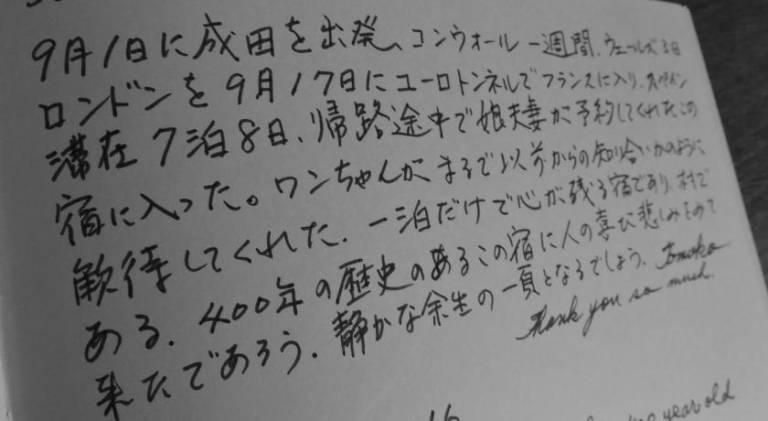 9月1日に成田を出発、コンウォール一週間、ウェールズ3日
ロンドンを9月17日にユーロトンネルでフランスに入り、スペイン
滞在7泊8日、帰路途中で娘夫妻が予約してくれたこの
宿に入った。ワンちゃんがまるで以前からの知り合いかのように
歓待してくれた。一泊だけで心が残る宿であり、村で
ある。400年の歴史のあるこの宿に人の喜び悲しみをのせて
来たであろう。静かな余生の一頁となるでしょう。Tomoko
Thank you so much.
year old